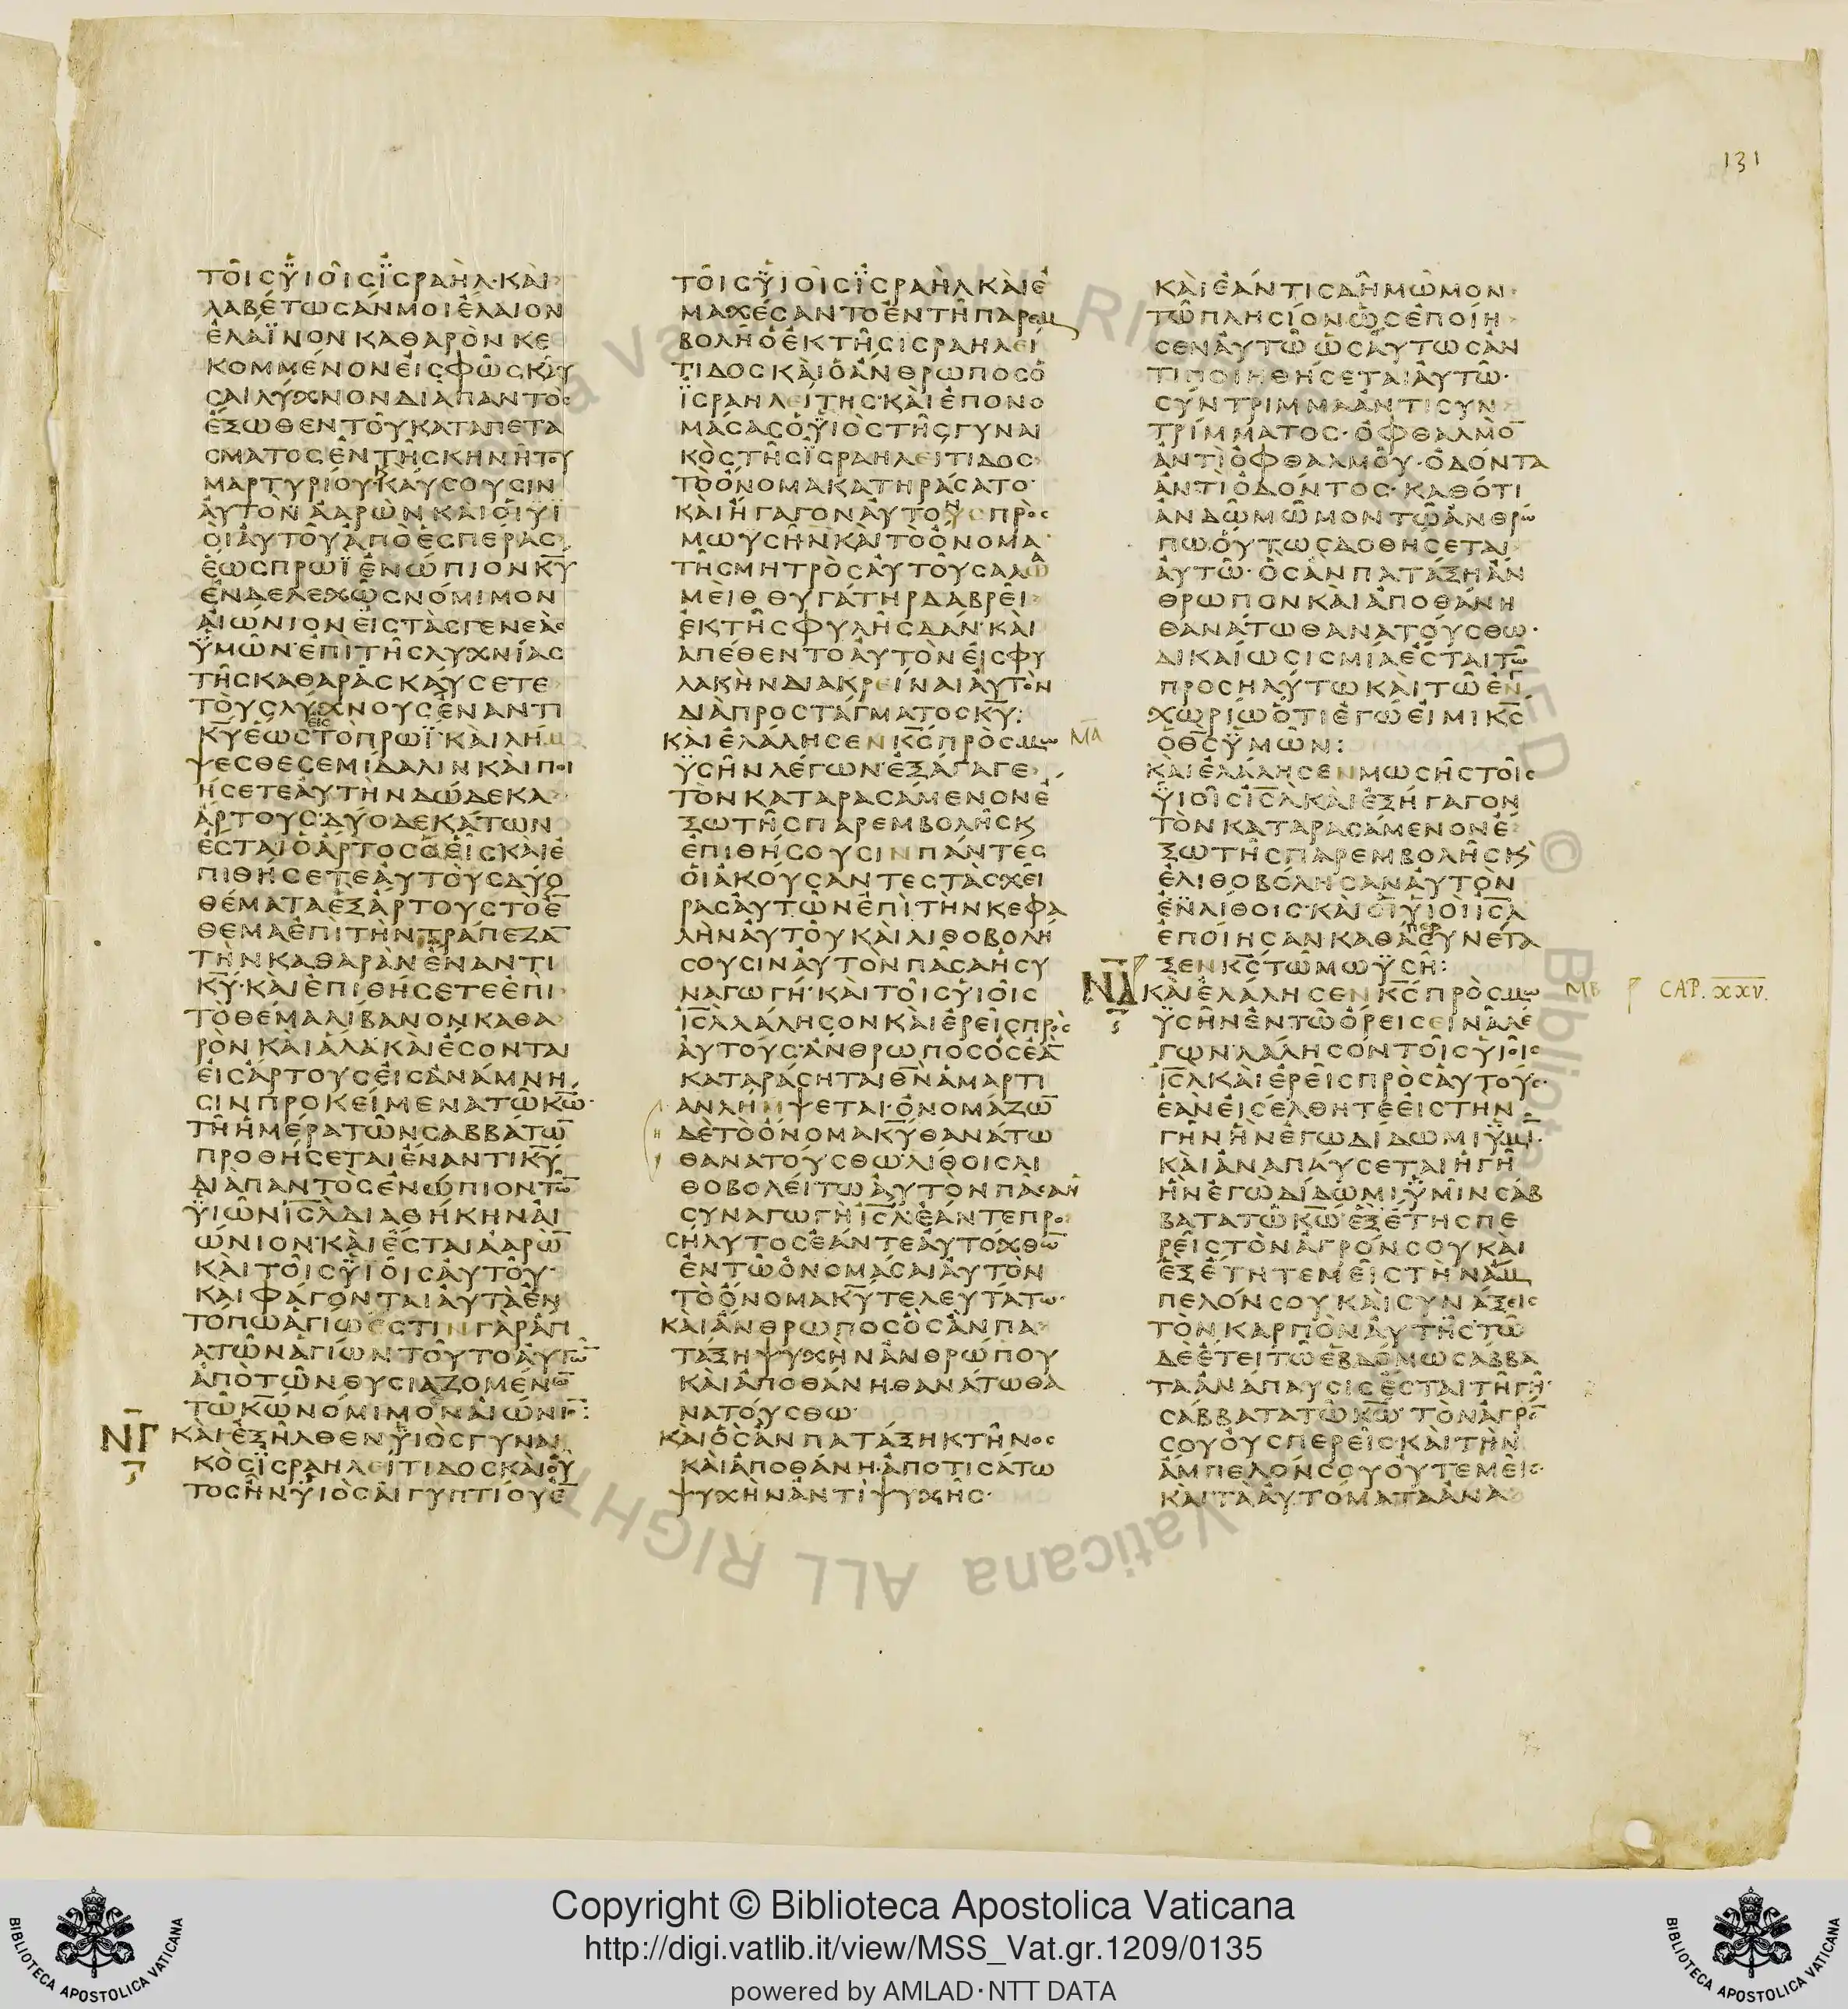 131
ΤΟΙϹΫΙΟΙϹΪϹΡΑΗΛ·ΚΑΙ
ΛΑΒΕΤΩϹΑΝΜΟΙΕΛΑΙΟΝ
ΕΛΑΪΝΟΝΚΑΘΑΡΟΝΚΕ
ΚΟΜΜΕΝΟΝΕΙϹΦΩϹΚΑΥ
ϹΑΙΛΥΧΝΟΝΔΙΑΠΑΝΤΟϹ
ΕΞΩΘΕΝΤΟΥΚΑΤΑΠΕΤΑ
ϹΜΑΤΟϹΕΝΤΗϹΚΗΝΗΤΟΥ
ΜΑΡΤΥΡΙΟΥ·ΚΑΥϹΟΥϹΙΝ
ΑΥΤΟΝΑΑΡΩΝΚΑΙΟΙΥΙ
ΟΙΑΥΤΟΥΑΠΟΕϹΠΕΡΑϹ
ΕΩϹΠΡΩΪΕΝΩΠΙΟΝΚ̅Υ̅
ΕΝΔΕΛΕΧΩϹΝΟΜΙΜΟΝ
ΑΙΩΝΙΟΝΕΙϹΤΑϹΓΕΝΕΑϹ
ΫΜΩΝ·ΕΠΙΤΗϹΛΥΧΝΙΑϹ
ΤΗϹΚΑΘΑΡΑϹΚΑΥϹΕΤΕ
ΤΟΥϹΛΥΧΝΟΥϹΕΝΑΝΤΙ
Κ̅Υ̅ΕΩϹΕΙϹΤΟΠΡΩΪ·ΚΑΙΛΗΜ
ΨΕϹΘΕϹΕΜΙΔΑΛΙΝΚΑΙΠΟΙ
ΗϹΕΤΕΑΥΤΗΝΔΩΔΕΚΑ
ΑΡΤΟΥϹ·ΔΥΟΔΕΚΑΤΩΝ
ΕϹΤΑΙΟΑΡΤΟϹΟΕΙϹΚΑΙΕ
ΠΙΘΗϹΕΤΕΑΥΤΟΥϹΔΥΟ
ΘΕΜΑΤΑΕΞΑΡΤΟΥϹΤΟΕ̅
ΘΕΜΑΕΠΙΤΗΝΤΡΑΠΕΖΑ̅
ΤΗΝΚΑΘΑΡΑΝΕΝΑΝΤΙ
Κ̅Υ̅·ΚΑΙΕΠΙΘΗϹΕΤΕΕΠΙ
ΤΟΘΕΜΑΛΙΒΑΝΟΝΚΑΘΑ
ΡΟΝΚΑΙΑΛΑΚΑΙΕϹΟΝΤΑΙ
ΕΙϹΑΡΤΟΥϹΕΙϹΑΝΑΜΝΗ
ϹΙΝΠΡΟΚΕΙΜΕΝΑΤΩΚ̅Ω̅·
ΤΗΗΜΕΡΑΤΩΝϹΑΒΒΑΤΩ̅
ΠΡΟΘΗϹΕΤΑΙΕΝΑΝΤΙΚ̅Υ̅
ΔΙΑΠΑΝΤΟϹΕΝΩΠΙΟΝΤΩ̅
ΫΙΩΝΙ̅Ϲ̅Λ̅ΔΙΑΘΗΚΗΝΑΙ
ΩΝΙΟΝ·ΚΑΙΕϹΤΑΙΑΑΡΩ̅
ΚΑΙΤΟΙϹΫΙΟΙϹΑΥΤΟΥ·
ΚΑΙΦΑΓΟΝΤΑΙΑΥΤΑΕΝ
ΤΟΠΩΑΓΙΩΕϹΤΙΝΓΑΡΑΓΙ
ΑΤΩΝΑΓΙΩΝΤΟΥΤΟΑΥΤΩ̅
ΑΠΟΤΩΝΘΥϹΙΑΖΟΜΕΝΩ̅
ΤΩΚ̅Ω̅ΝΟΜΙΜΟΝΑΙΩΝΙΟ̅:
Ν̅Γ̅ ΚΑΙΕΞΗΛΘΕΝΫΙΟϹΓΥΝΑΙ
ΚΟϹΪϹΡΑΗΛΕΙΤΙΔΟϹΚΑΙΟΥ
ΤΟϹΗΝΫΙΟϹΑΙΓΥΠΤΙΟΥΕ̅
ΤΟΙϹΫΙΟΙϹΪϹΡΑΗΛΚΑΙΕ
ΜΑΧΕϹΑΝΤΟΕΝΤΗΠΑΡΕΜ
ΒΟΛΗΟΕΚΤΗϹΙϹΡΑΗΛΕΙ
ΤΙΔΟϹΚΑΙΟΑΝΘΡΩΠΟϹΟ
ΪϹΡΑΗΛΕΙΤΗϹ·ΚΑΙΕΠΟΝΟ
ΜΑϹΑϹΟΫΙΟϹΤΗϹΓΥΝΑΙ
ΚΟϹΤΗϹΪϹΡΑΗΛΕΙΤΙΔΟϹ
ΤΟΟΝΟΜΑΚΑΤΗΡΑϹΑΤΟ·
ΚΑΙΗΓΑΓΟΝΑΥΤΟΥϹΠΡΟϹ
ΜΩΥϹΗΝΚΑΙΤΟΟΝΟΜΑ
ΤΗϹΜΗΤΡΟϹΑΥΤΟΥϹΑΛΩ
ΜΕΙΘΘΥΓΑΤΗΡΔΑΒΡΕΙ
ΕΚΤΗϹΦΥΛΗϹΔΑΝ·ΚΑΙ
ΑΠΕΘΕΝΤΟΑΥΤΟΝΕΙϹΦΥ
ΛΑΚΗΝΔΙΑΚΡΕΙΝΑΙΑΥΤΟΝ
ΔΙΑΠΡΟϹΤΑΓΜΑΤΟϹΚ̅Υ̅:
ΚΑΙΕΛΑΛΗϹΕΝΚ̅Ϲ̅ΠΡΟϹΜΩ Μ̅Α̅
ΫϹΗΝΛΕΓΩΝ·ΕΞΑΓΑΓΕ
ΤΟΝΚΑΤΑΡΑϹΑΜΕΝΟΝΕ
ΞΩΤΗϹΠΑΡΕΜΒΟΛΗϹΚ
ΕΠΙΘΗϹΟΥϹΙΝΠΑΝΤΕϹ
ΟΙΑΚΟΥϹΑΝΤΕϹΤΑϹΧΕΙ
ΡΑϹΑΥΤΩΝΕΠΙΤΗΝΚΕΦΑ
ΛΗΝΑΥΤΟΥΚΑΙΛΙΘΟΒΟΛΗ
ϹΟΥϹΙΝΑΥΤΟΝΠΑϹΑΗϹΥ
ΝΑΓΩΓΗ·ΚΑΙΤΟΙϹΫΙΟΙϹ
Ι̅Ϲ̅Λ̅ΛΑΛΗϹΟΝΚΑΙΕΡΕΙϹΠΡΟϹ
ΑΥΤΟΥϹ·ΑΝΘΡΩΠΟϹΟϹΕΑ̅
ΚΑΤΑΡΑϹΗΤΑΙΘ̅Ν̅ΑΜΑΡΤΙ
ΑΝΛΗΜΨΕΤΑΙ·ΟΝΟΜΑΖΩ̅
ΔΕΤΟΟΝΟΜΑΚ̅Υ̅ΘΑΝΑΤΩ
ΘΑΝΑΤΟΥϹΘΩ·ΛΙΘΟΙϹΛΙ
ΘΟΒΟΛΕΙΤΩΑΥΤΟΝΠΑϹΑΗ
ϹΥΝΑΓΩΓΗΙ̅Ϲ̅Λ̅·ΕΑΝΤΕΠΡΟϹ
ϹΗΛΥΤΟϹΕΑΝΤΕΑΥΤΟΧΘΩ̅
ΕΝΤΩΟΝΟΜΑϹΑΙΑΥΤΟΝ
ΤΟΟΝΟΜΑΚ̅Υ̅ΤΕΛΕΥΤΑΤΩ·
ΚΑΙΑΝΘΡΩΠΟϹΟϹΑΝΠΑ
ΤΑΞΗΨΥΧΗΝΑΝΘΡΩΠΟΥ
ΚΑΙΑΠΟΘΑΝΗ·ΘΑΝΑΤΩΘΑ
ΝΑΤΟΥϹΘΩ·
ΚΑΙΟϹΑΝΠΑΤΑΞΗΚΤΗΝΟϹ
ΚΑΙΑΠΟΘΑΝΗ·ΑΠΟΤΙϹΑΤΩ
ΨΥΧΗΝΑΝΤΙΨΥΧΗϹ·
ΚΑΙΕΑΝΤΙϹΔΗΜΩΜΟΝ
ΤΩΠΛΗϹΙΟΝΩϹΕΠΟΙΗ
ϹΕΝΑΥΤΩΩϹΑΥΤΩϹΑΝ
ΤΙΠΟΙΗΘΗϹΕΤΑΙΑΥΤΩ·
ϹΥΝΤΡΙΜΜΑΑΝΤΙϹΥΝ
ΤΡΙΜΜΑΤΟϹ·ΟΦΘΑΛΜΟ̅
ΑΝΤΙΟΦΘΑΛΜΟΥ·ΟΔΟΝΤΑ
ΑΝΤΙΟΔΟΝΤΟϹ·ΚΑΘΟΤΙ
ΑΝΔΩΜΩΜΟΝΤΩΑΝΘΡΩ
ΠΩΟΥΤΩϹΔΟΘΗϹΕΤΑΙ
ΑΥΤΩ·ΟϹΑΝΠΑΤΑΞΗΑΝ
ΘΡΩΠΟΝΚΑΙΑΠΟΘΑΝΗ
ΘΑΝΑΤΩΘΑΝΑΤΟΥϹΘΩ·
ΔΙΚΑΙΩϹΙϹΜΙΑΕϹΤΑΙΤΩ
ΠΡΟϹΗΛΥΤΩΚΑΙΤΩΕΝ
ΧΩΡΙΩΟΤΙΕΓΩΕΙΜΙΚ̅Ϲ̅
ΟΘ̅Ϲ̅ΫΜΩΝ:
ΚΑΙΕΛΑΛΗϹΕΝΜΩϹΗϹΤΟΙϹ
ΫΙΟΙϹΙ̅Ϲ̅Λ̅ΚΑΙΕΞΗΓΑΓΟΝ
ΤΟΝΚΑΤΑΡΑϹΑΜΕΝΟΝΕ
ΞΩΤΗϹΠΑΡΕΜΒΟΛΗϹΚ
ΕΛΙΘΟΒΟΛΗϹΑΝΑΥΤΟΝ
ΕΝΛΙΘΟΙϹ·ΚΑΙΟΙΫΙΟΙΙ̅Ϲ̅Λ̅
ΕΠΟΙΗϹΑΝΚΑΘΑΠΕΡϹΥΝΕΤΑ
ΞΕΝΚ̅Ϲ̅ΤΩΜΩΫϹΗ:
Ν̅Δ̅ ΚΑΙΕΛΑΛΗϹΕΝΚ̅Ϲ̅ΠΡΟϹΜΩ ΜΒ CAP. XXV.
ΫϹΗΝΕΝΤΩΟΡΕΙϹΕΙΝΑΛΕ
ΓΩΝ·ΛΑΛΗϹΟΝΤΟΙϹΫΙΟΙϹ
Ι̅Ϲ̅Λ̅ΚΑΙΕΡΕΙϹΠΡΟϹΑΥΤΟΥϹ·
ΕΑΝΕΙϹΕΛΘΗΤΕΕΙϹΤΗΝ
ΓΗΝΗΝΕΓΩΔΙΔΩΜΙΫΜΙ̅·
ΚΑΙΑΝΑΠΑΥϹΕΤΑΙΗΓΗ
ΗΝΕΓΩΔΙΔΩΜΙΫΜΙΝϹΑΒ
ΒΑΤΑΤΩΚ̅Ω̅·ΕΞΕΤΗϹΠΕ
ΡΕΙϹΤΟΝΑΓΡΟΝϹΟΥΚΑΙ
ΕΞΕΤΗΤΕΜΕΙϹΤΗΝΑΜ
ΠΕΛΟΝϹΟΥΚΑΙϹΥΝΑΞΕΙϹ
ΤΟΝΚΑΡΠΟΝΑΥΤΗϹ·ΤΩ
ΔΕΕΤΕΙΤΩΕΒΔΟΜΩϹΑΒΒΑ
ΤΑΑΝΑΠΑΥϹΙϹΕϹΤΑΙΤΗΓΗ·
ϹΑΒΒΑΤΑΤΩΚ̅Ω̅·ΤΟΝΑΓΡΟ̅
ϹΟΥΟΥϹΠΕΡΕΙϹ·ΚΑΙΤΗΝ
ΑΜΠΕΛΟΝϹΟΥΟΥΤΕΜΕΙϹ·
ΚΑΙΤΑΑΥΤΟΜΑΤΑΑΝΑ
Copyright © Biblioteca Apostolica Vaticana
http://digi.vatlib.it/view/MSS_Vat.gr.1209/0135
powered by AMLAD·NTT DATA
BIBLIOTECA APOSTOLICA VATICANA
BIBLIOTECA APOSTOLICA VATICANA